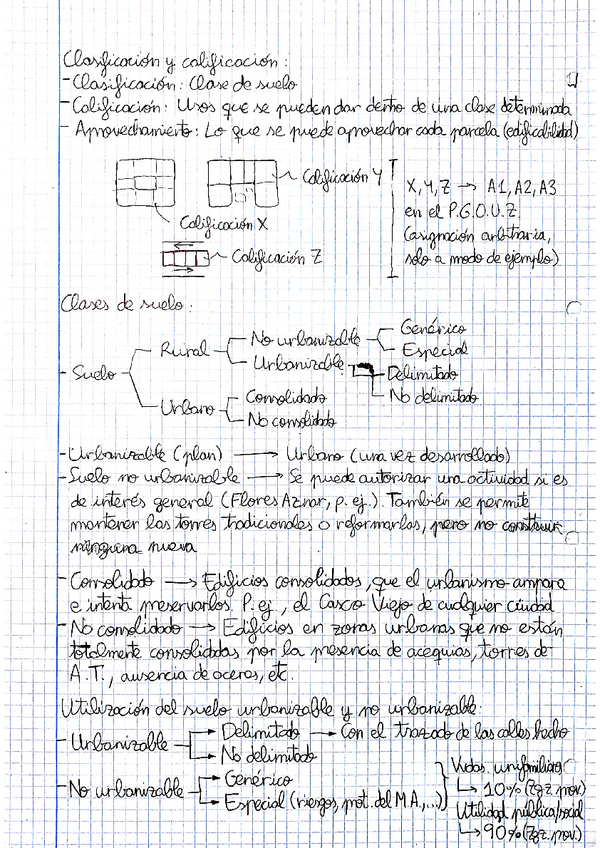 Clasificación y calificación:
- Clasificación: Clase de suelo
- Calificación: Usos que se pueden dar dentro de una clase determinada
- Aprovechamiento: Lo que se puede aprovechar cada parcela (edificabilidad)
Calificación Y
Calificación X
Calificación Z
X, Y, Z → A1, A2, A3
en el P.G.O.U.Z.
(asignación arbitraria,
solo a modo de ejemplo)
Clases de suelo:
- Suelo
Rural
No urbanizable
Genérico
Especial
Urbanizable
Delimitado
No delimitado
Urbano
Consolidado
No consolidado
- Urbanizable (plan) → Urbano (una vez desarrollado)
- Suelo no urbanizable → Se puede autorizar una actividad si es
de interés general (Flores Aznar, p. ej.). También se permite
mantener las torres tradicionales o reformarlas, pero no construir
ninguna nueva
- Consolidado → Edificios consolidados, que el urbanismo ampara
e intenta preservarlos. P. ej., el Casco Viejo de cualquier ciudad
- No consolidado → Edificios en zonas urbanas que no están
totalmente consolidadas por la presencia de acequias, torres de
A.T., ausencia de aceras, etc.
Utilización del suelo urbanizable y no urbanizable:
- Urbanizable
Delimitado → Con el trazado de las calles hecho
No delimitado
- No urbanizable
Genérico
Especial (riesgos, prot. del M.A., ...)
Vvdas. unifamiliares
↳ 10% (Zgz. prov.)
Utilidad pública/social
↳ 90% (Zgz. prov.)